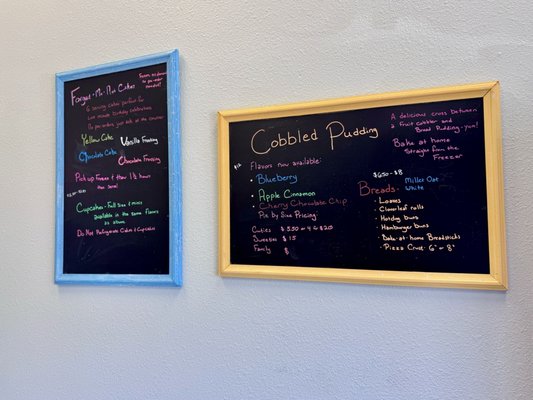 Forget-Me-Not Cakes
6 serving cakes perfect for
last minute birthday celebrations
No pre-orders, just ask at the counter
Yellow Cake
Vanilla Frosting
Chocolate Cake
Chocolate Frosting
Pick up Frozen & thaw 1½ hours
then serve!
Cupcakes - Full Size & minis
available in the same flavors
as above
Do Not Refrigerate Cakes & Cupcakes
Cobbled Pudding
A delicious cross between
a Fruit Cobbler and
Bread Pudding - yum!
Bake at home
Straight from the
Freezer
Flavors now available:
• Blueberry
• Apple Cinnamon
• Cherry Chocolate Chip
Pie By Size Pricing:
Cuties $5.50 or 4 @ $20
Sweeties $15
Family $
$6.50 - $8
Breads - Miller Oat
White
• Loaves
• Cloverleaf rolls
• Hotdog buns
• Hamburger buns
• Bake-at-home Breadsticks
• Pizza Crust - 6" or 8"